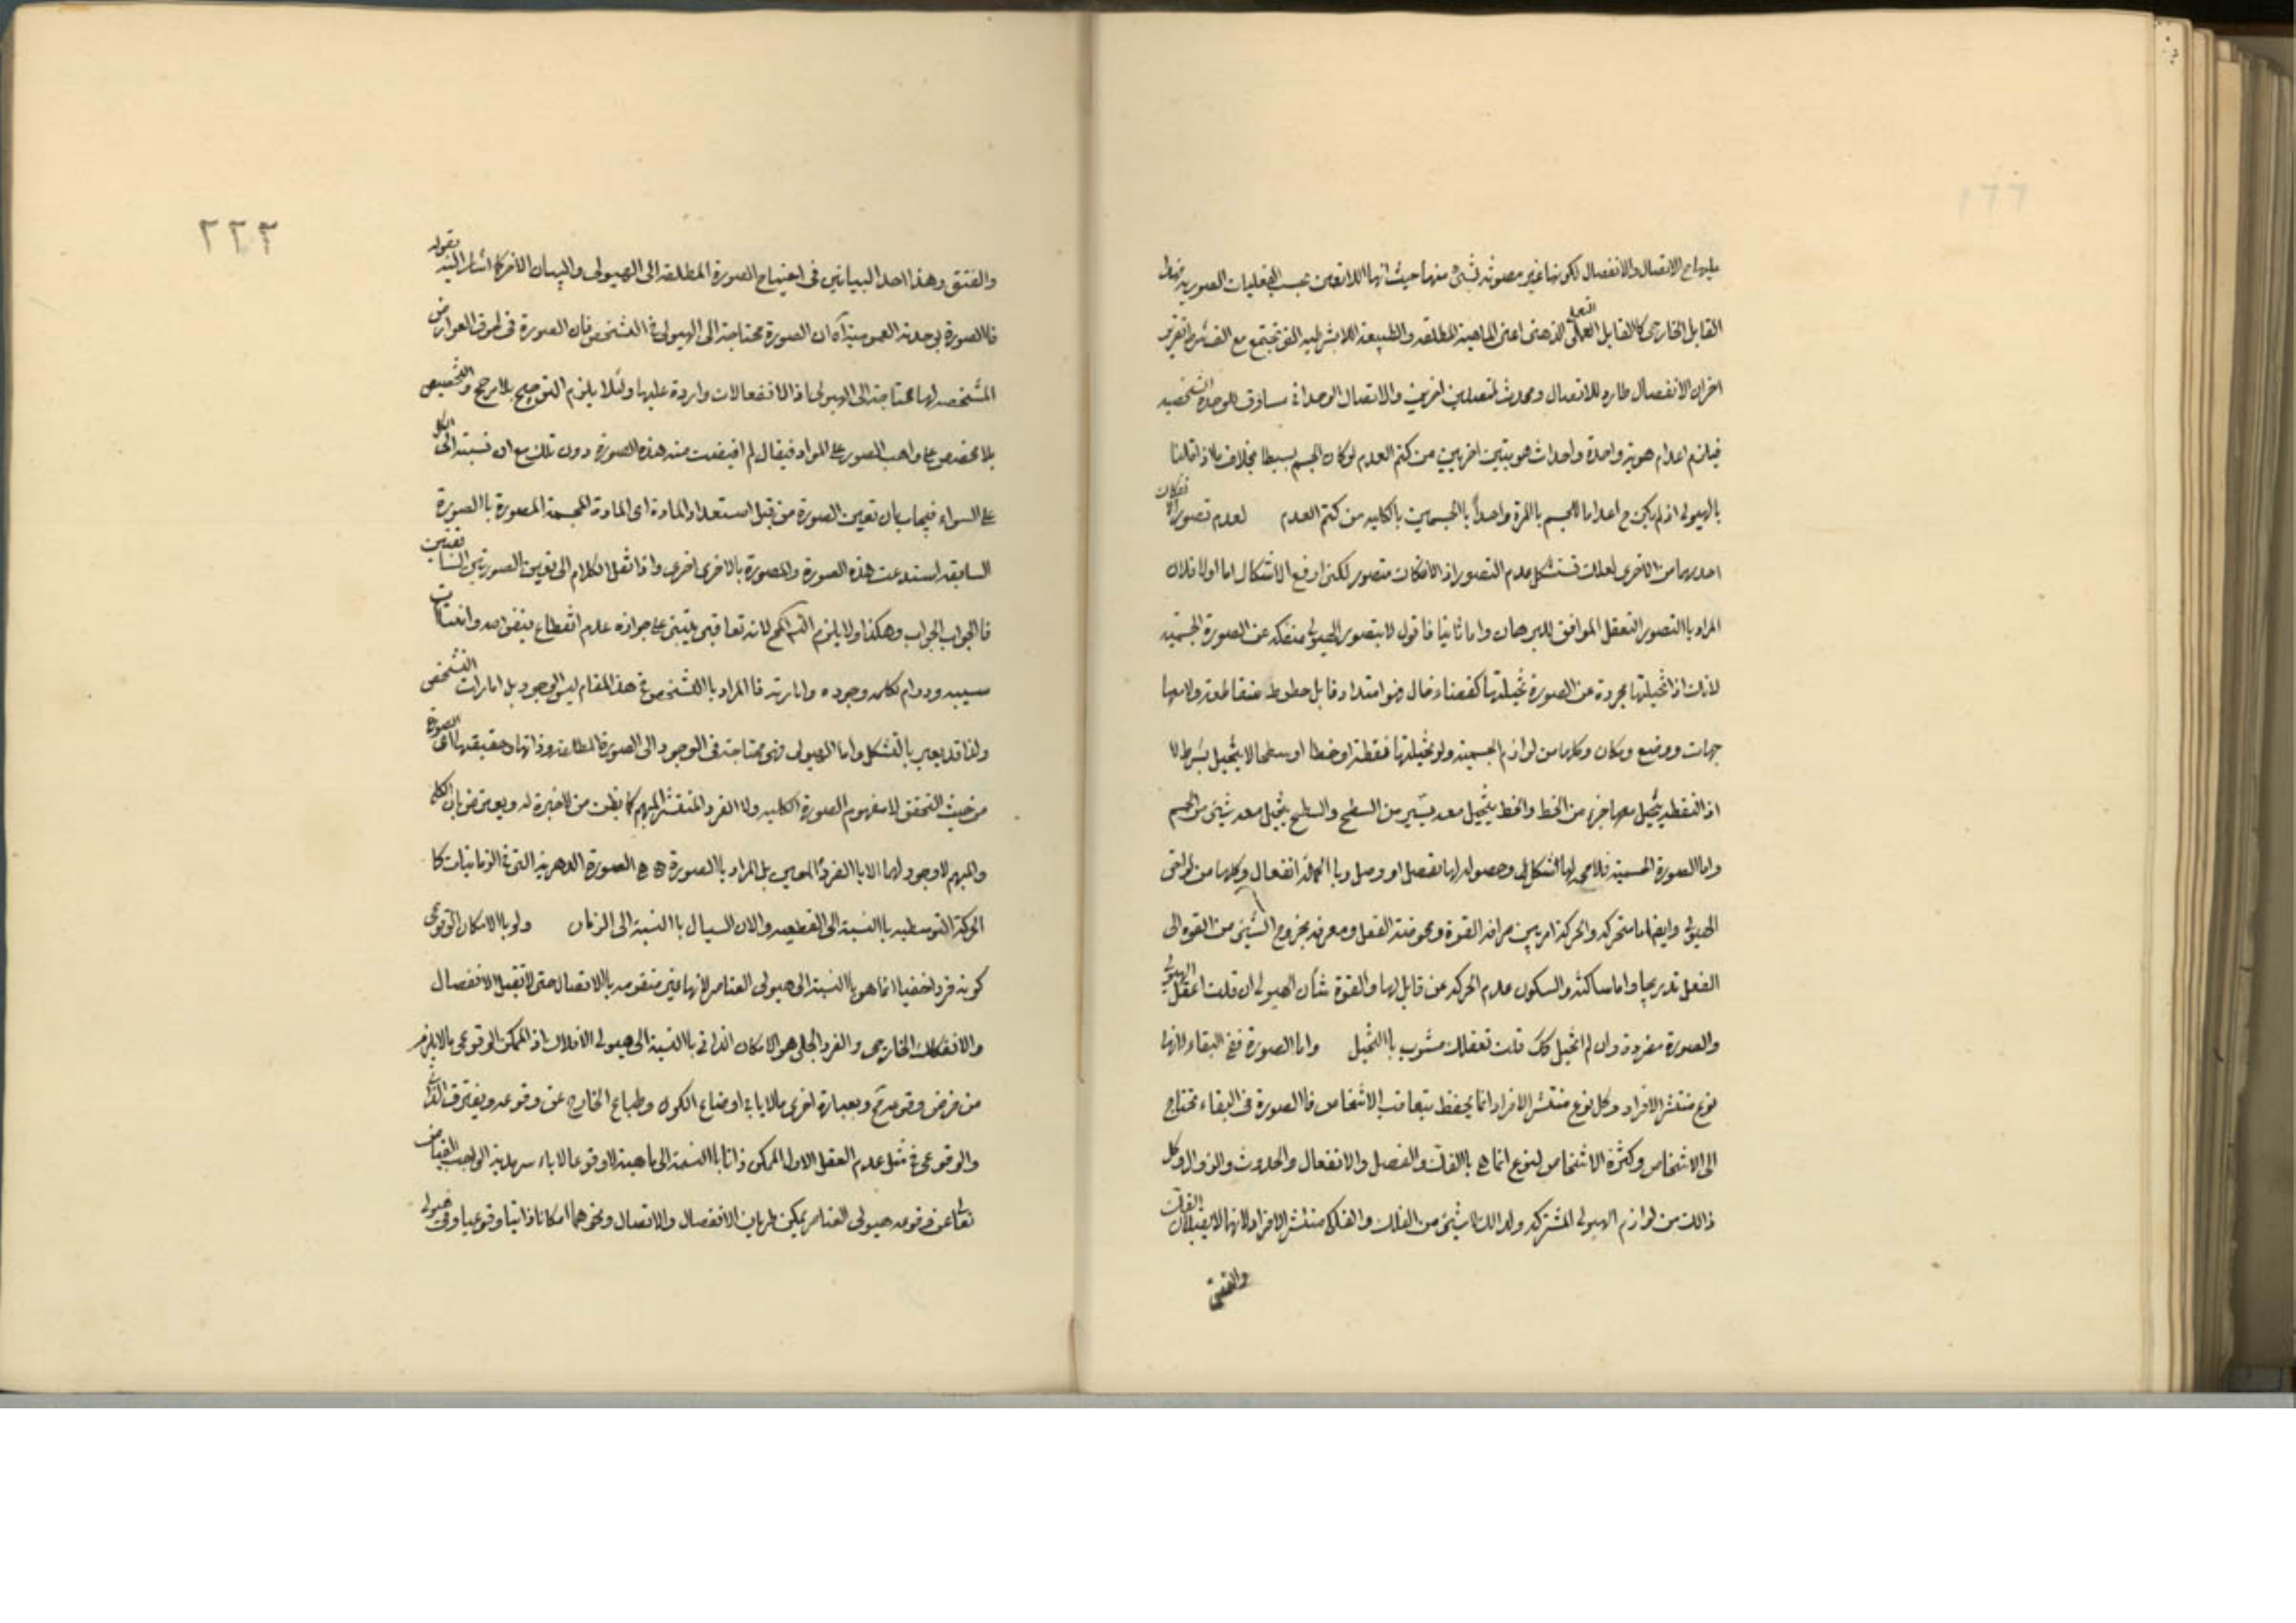 القابل الخارجى كالقابل العملى الذهنى اعنى الماهية المطلقه والطبيعة اللابشرطيه التى تجتمع مع الف شرط تقرير
اخر ان الانفصال طارد للاتصال ومحدث لمتصلين اخرين والاتصال الوحدانى مساوق للوحدة الشخصيه
فيلزم اعدام هوية واحدة واحداث هويتين اخريين من كتم العدم لو كان الجسم بسيطا بخلاف ما اذا قلنا
بالهيولى اذ لم يكن ح اعداما للجسم باالمرة واحداثا بالجسمين بالكليه من كتم العدم لعدم تصور انفكاك
احديهما من الاخرى لعلك تستشكل عدم التصور اذ الانفكاك متصور لكنى ارفع الاشكال اما اولا فلان
المراد باالتصور التعقل الموافق للبرهان واما ثانيا فاقول لا يتصور الهيولى منفكه عن الصورة الجسميه
لانك اذا تخيلتها مجردة عن الصورة تخيلتها كفضاء خال وهو امتداد قابل خطوط متقاطعة ولا معها
جهات ووضع ومكان وكلها من لوازم الجسمية ولو تخيلتها نقطة او خطا او سطحا لا يتخيل بشرط لا
اذ النقطه يتخيل معها جزء من الخط والخط يتخيل معه يسير من السطح والسطح يتخيل معه شيئ من الجسم
واما الصورة الجسمية فلا محه لها شكل وحصوله لها بفصل او وصل وباالجملة انفعال وكلها من لواحق
الهيولى وايضا اما متحركه والحركة امر بين صرافه القوة ومحوضة الفعل ومعرفه بخروج الشيئ من القوه الى
الفعل تدريجا واما ساكنه والسكون عدم الحركه عن قابل لها والقوة شأن الهيولى ان قلت اعقل الهيولى
والصورة مفردة وان لم اتخيل كك قلت تعقلك مشوب باالتخيل واما الصورة ففى البقاء لانها
نوع منتشر الافراد وكل نوع منتشر الافراد انما يحفظ بتعاقب الاشخاص فاالصورة فى البقاء تحتاج
الى الاشخاص وكثرة الاشخاص لنوع انما هى باالفك والفصل والانفعال والحدوث والزوال وكل
ذالك من لوازم الهيولى المشتركه ولذالك لا شيئ من الفلك والفلكى منتشر الافراد لانها لا يقبلان الفك
والفتق
٢٢٢
والفتق وهذا احد البيانين فى احتياج الصورة المطلقه الى الهيولى والبيان الاخر كما اشار اليه بقوله
فاالصورة بوحدته العموميه اه ان الصورة محتاجة الى الهيولى فى التشخص فان الصورة فى طرو العوارض
المشخصه لها محتاجة الى الهيولى اذ الانفعالات واردة عليها ولئلا يلزم الترجيح بلا مرجح والتخصيص
بلا مخصص على واهب الصور على المواد فيقال لم افيضت منه هذه الصورة دون تلك مع ان نسبته الى الكل
على السواء فيجاب بان تعين الصورة من قبل استعداد المادة اى المادة المجسمة المصورة باالصورة
السابقه استدعت هذه الصورة والمصورة بالاخرى اخرى واذا نقل الكلام الى تعين الصورتين السابقتين
فاالجواب الجواب وهكذا ولا يلزم التسلسل لانه تعاقبى يبتنى على جوازه عدم انقطاع فيض الله
سيبه ودوام كلمه وجوده واما رته فاالمراد باالتشخص فى هذا المقام ليس الوجود بل امارات التشخص
ولذا قد يعبر بالتشكل واما الهيولى فهى محتاجة فى الوجود الى الصورة المطلقه وذاتها وحقيقتها اى الصورة
من حيث التحقق لا مفهوم الصورة الكليه ولا الفرد المنتشر المبهم كما يظن من لا خبرة له ويعترض بان الكلى
والمبهم لا وجود لهما الا باالفرد المعين بل المراد باالصورة هى الصورة الدهرية التى فى الزمانيات كا
الحركة التوسطيه باالنسبة الى القطعيه والان السيال باالنسبة الى الزمان ولو باالامكان الوقوعى
كونه فردا خفيا انما هو باالنسبة الى هيولى العناصر لانها غير متقومه باالاتصال حتى لا تقبل الانفصال
والانفكاك الخارجى والفرد الجلى هو الامكان الذاتى باالنسبة الى هيولى الافلاك اذ الممكن الوقوعى ما لا يلزم
من فرض وقوعه مح وبعبارة اخرى ما لا يابى اوضاع الكون وطباع الخارج عن وقوعه ويفترق الذاتى
والوقوعى فى مثل عدم العقل الاول الممكن ذاتا باالنسبة الى ماهية لا وقوعا لاباء سرمدية الواجب الفياض
تعالى عن وقوعه هيولى العناصر يمكن طريان الانفصال والاتصال ونحوهما امكانا ذاتيا ووقوعيا وفى هيولى